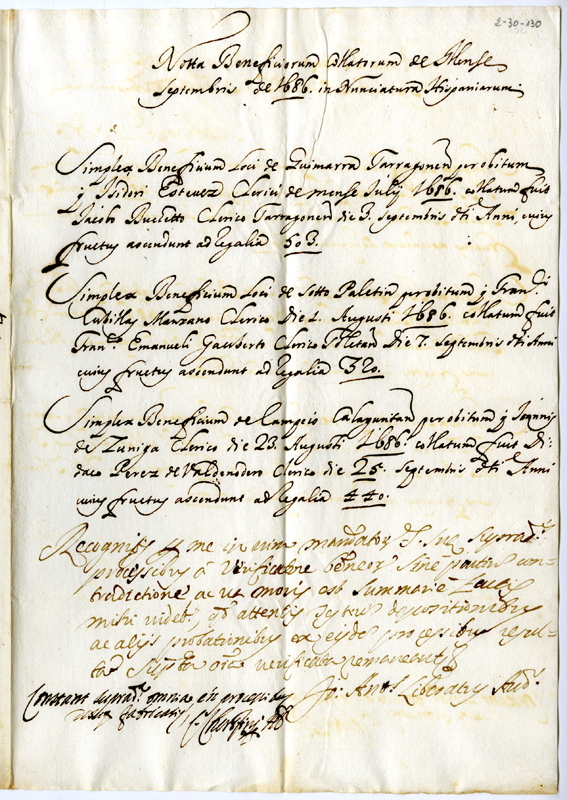 2-30-130
Notta Beneficiorum collatorum de Mense
Septembris de 1686. in Nunciatura Hispaniarum
Simplex Beneficium Loci de Guimarra Tarragonen per obitum
q Isidori Estevez Clerici de mense Julij 1686. collatum fuit
Jacobo Clerico Tarragonen die 3. Septembris dti Anni cuius
fructus ascendunt ad regalia 503.
Simplex Beneficium Loci de Sotto Paletin per obitum q Franci
Cubillas Manzano Clerico die 1. Augusti 1686. collatum fuit
Franco Emanueli Clerico Toletan die 7. Septembris dti Anni
cuius fructus ascendunt ad regalia 320.
Simplex Beneficium de Campeio Calaguritan per obitum q Joannis
de Zuniga Clerico die 23. Augusti 1686. collatum fuit Di-
daco Perez de Valdenebro Clerico die 25 Septembris dti Anni
cuius fructus ascendunt ad regalia 440.
Recognitis p me in vim mandator suprad.
processibus verificatione sine partis con-
tradictione ac ut moris est summarie
mihi videt. qd attentis testium depositionibus
ac alijs probationibus ex eisdem processibus resul-
tan verificata remaneant
Constant suprad. omnia in processibus
Jo: Ant Liberatus Aud.